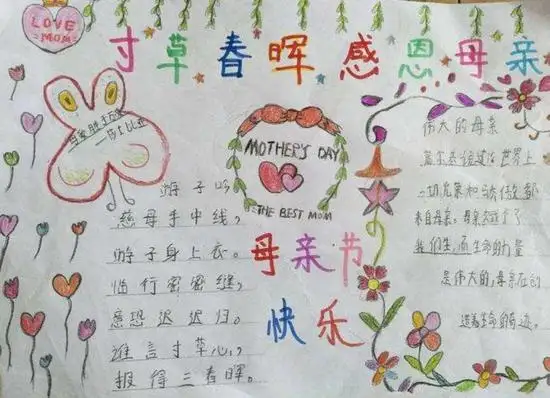 LOVE
MOM
寸草春晖感恩母亲
MOTHER'S DAY
THE BEST MOM
游子吟
慈母手中线，
游子身上衣。
临行密密缝，
意恐迟迟归。
谁言寸草心，
报得三春晖。
母亲节
快乐
伟大的母亲
高尔基说过：世界上
一切光荣和
都
来自母亲，母亲
了
我们生命的力量
是伟大的，母亲在创
造着生命的奇迹。